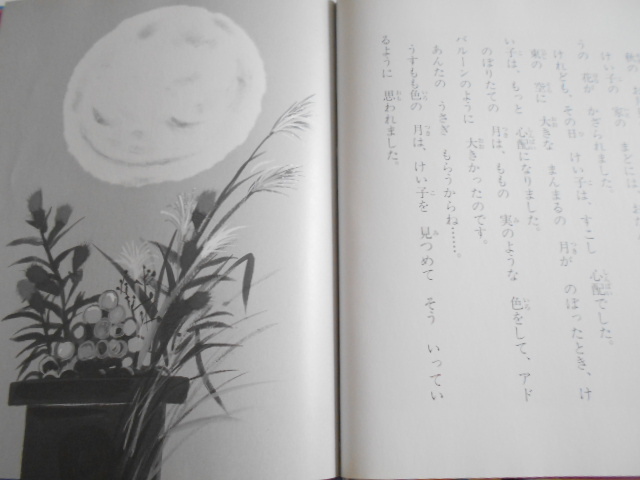 けい子の 家の まどには、
うの 花が かざられました。
けれども、その日 けい子は、すこし 心配でした。
東の 空に 大きな まんまるの 月が のぼったとき、け
い子は、もっと 心配になりました。
のぼりたての 月は、ももの 実のような 色をして、アド
バルーンのように 大きかったのです。
あんたの うさぎ もらうからね……。
うすもも色の 月は、けい子を 見つめて そう いってい
るように 思われました。